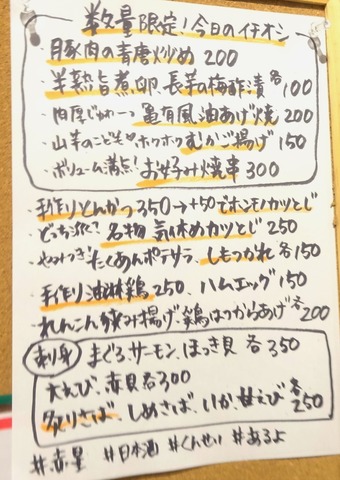 数量限定!今日のイチオシ
豚肉の青唐炒め 200
・半熟旨煮卵、長芋の梅酢漬 各100
・肉厚じゅわ〜っ 亀有風油あげ焼 200
・山芋のこども♡ホクホクむかご揚げ 150
・ボリューム満点!お好み焼串 300
・手作りとんかつ350→+50でホンモノカツとじ
・どっち派?名物 気休めカツとじ 250
・やみつきたくあんポテサラ、しもつかれ 各150
・手作り油淋鶏 250、ハムエッグ 150
・れんこん挟み揚げ、鶏はつからあげ 各200
刺身 まぐろ、サーモン、ほっき貝 各350
大えび、赤貝 各300
炙りさば、しめさば、いか、甘えび 各250
#赤星 #日本酒 #くんせい #あるよ